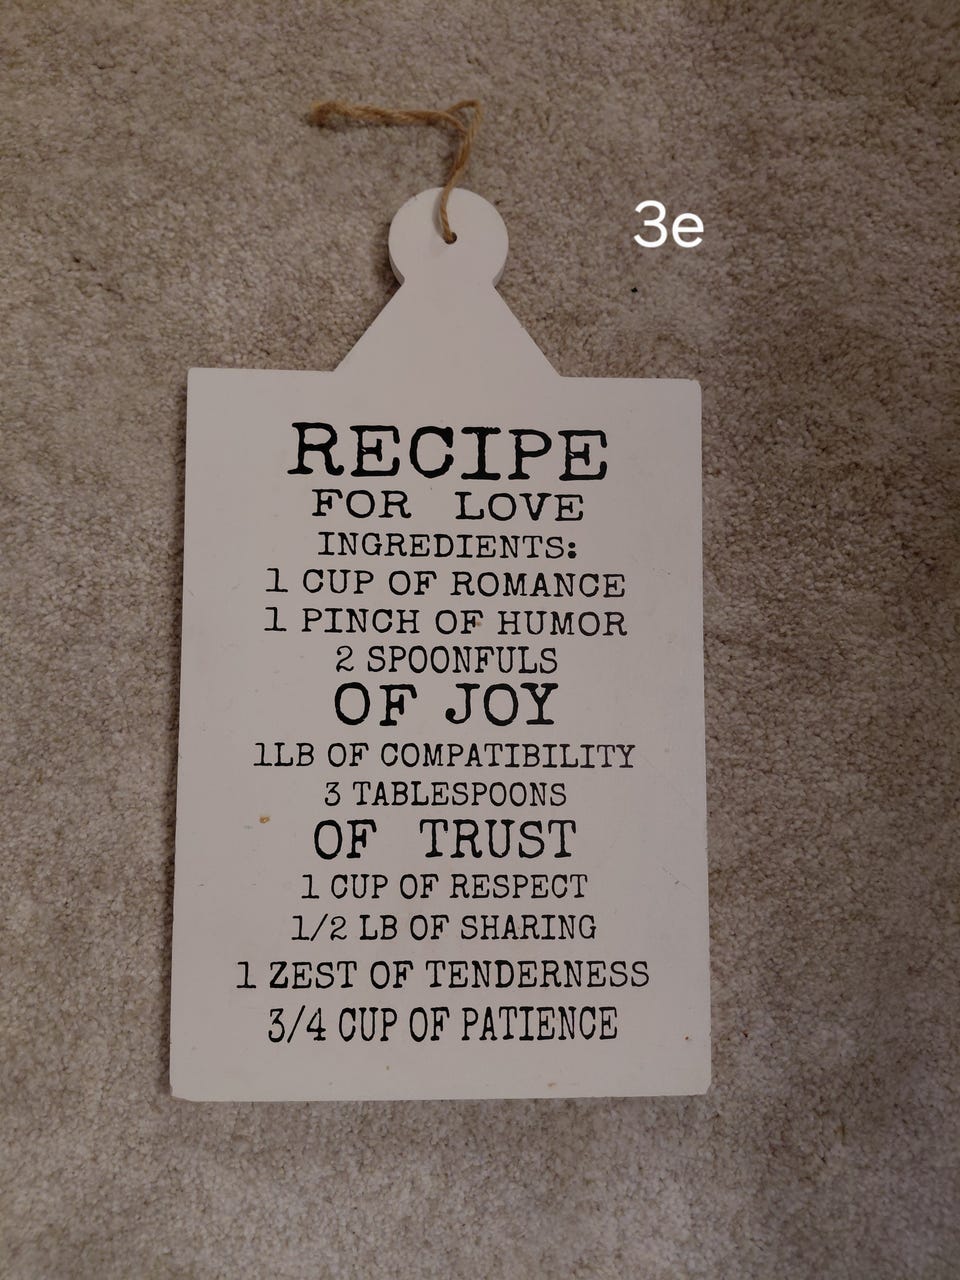 3e
RECIPE
FOR LOVE
INGREDIENTS:
1 CUP OF ROMANCE
1 PINCH OF HUMOR
2 SPOONFULS
OF JOY
1LB OF COMPATIBILITY
3 TABLESPOONS
OF TRUST
1 CUP OF RESPECT
1/2 LB OF SHARING
1 ZEST OF TENDERNESS
3/4 CUP OF PATIENCE